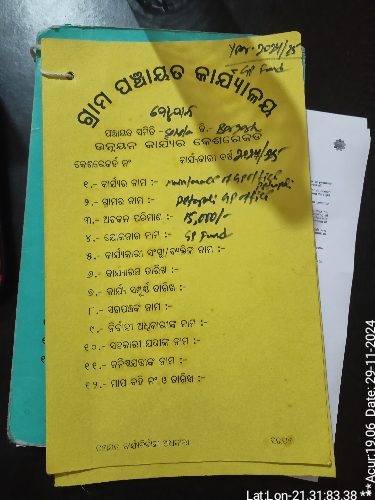 Year - 2024/25
GP Fund
ଗ୍ରାମ ପଞ୍ଚାୟତ କାର୍ଯ୍ୟାଳୟ
ପଞ୍ଚାୟତ ସମିତି :- ଜି.-
ଉନ୍ନୟନ କାର୍ଯ୍ୟର କେଶରେକର୍ଡ
କେଶରେକର୍ଡ ନଂ କାର୍ଯ୍ୟକାରୀ ବର୍ଷ 2024/25
୧.- କାର୍ଯ୍ୟର ନାମ :- of GP office
୨.- ଗ୍ରାମର ନାମ :- GP office
୩.- ଅଟକଳ ପରିମାଣ :- 15,000/-
୪.- ଯୋଜନାର ନାମ :- GP Fund
୫.- କାର୍ଯ୍ୟକାରୀ ସଂସ୍ଥା/ବ୍ୟକ୍ତିଙ୍କ ନାମ :-
୬.- କାର୍ଯ୍ୟାରମ୍ଭ ତାରିଖ :-
୭.- କାର୍ଯ୍ୟ ସମ୍ପୂର୍ଣ୍ଣ ତାରିଖ :-
୮.- ସରପଞ୍ଚଙ୍କ ନାମ :-
୯.- ନିର୍ବାହୀ ଅଧିକାରୀଙ୍କ ନାମ :-
୧୦.- ସହକାରୀ ଯନ୍ତ୍ରୀଙ୍କ ନାମ :-
୧୧.- କନିଷ୍ଠଯନ୍ତ୍ରୀଙ୍କ ନାମ :-
୧୨.- ମାପ ବହି ନଂ ଓ ତାରିଖ :-
ପଞ୍ଚାୟତ କାର୍ଯ୍ୟନିର୍ବାହୀ ଅଧିକାରୀ ସରପଞ୍ଚ
Lat:Lon-21.31:83.38 ***Acur:19.06 Date: 29-11-2024